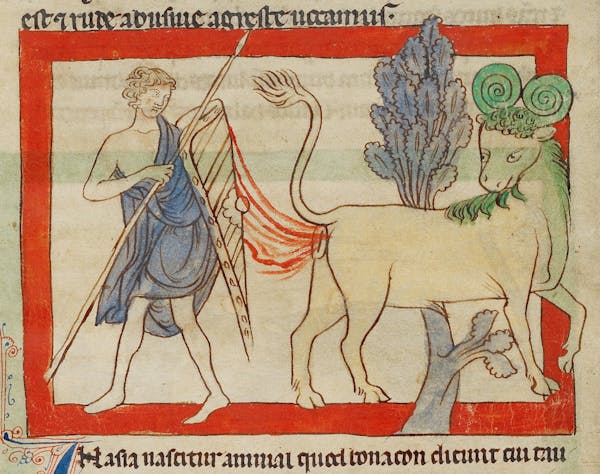 est et rude abusive agreste vocamus.
In asia nascitur animal quod bonacon dicunt cui tau